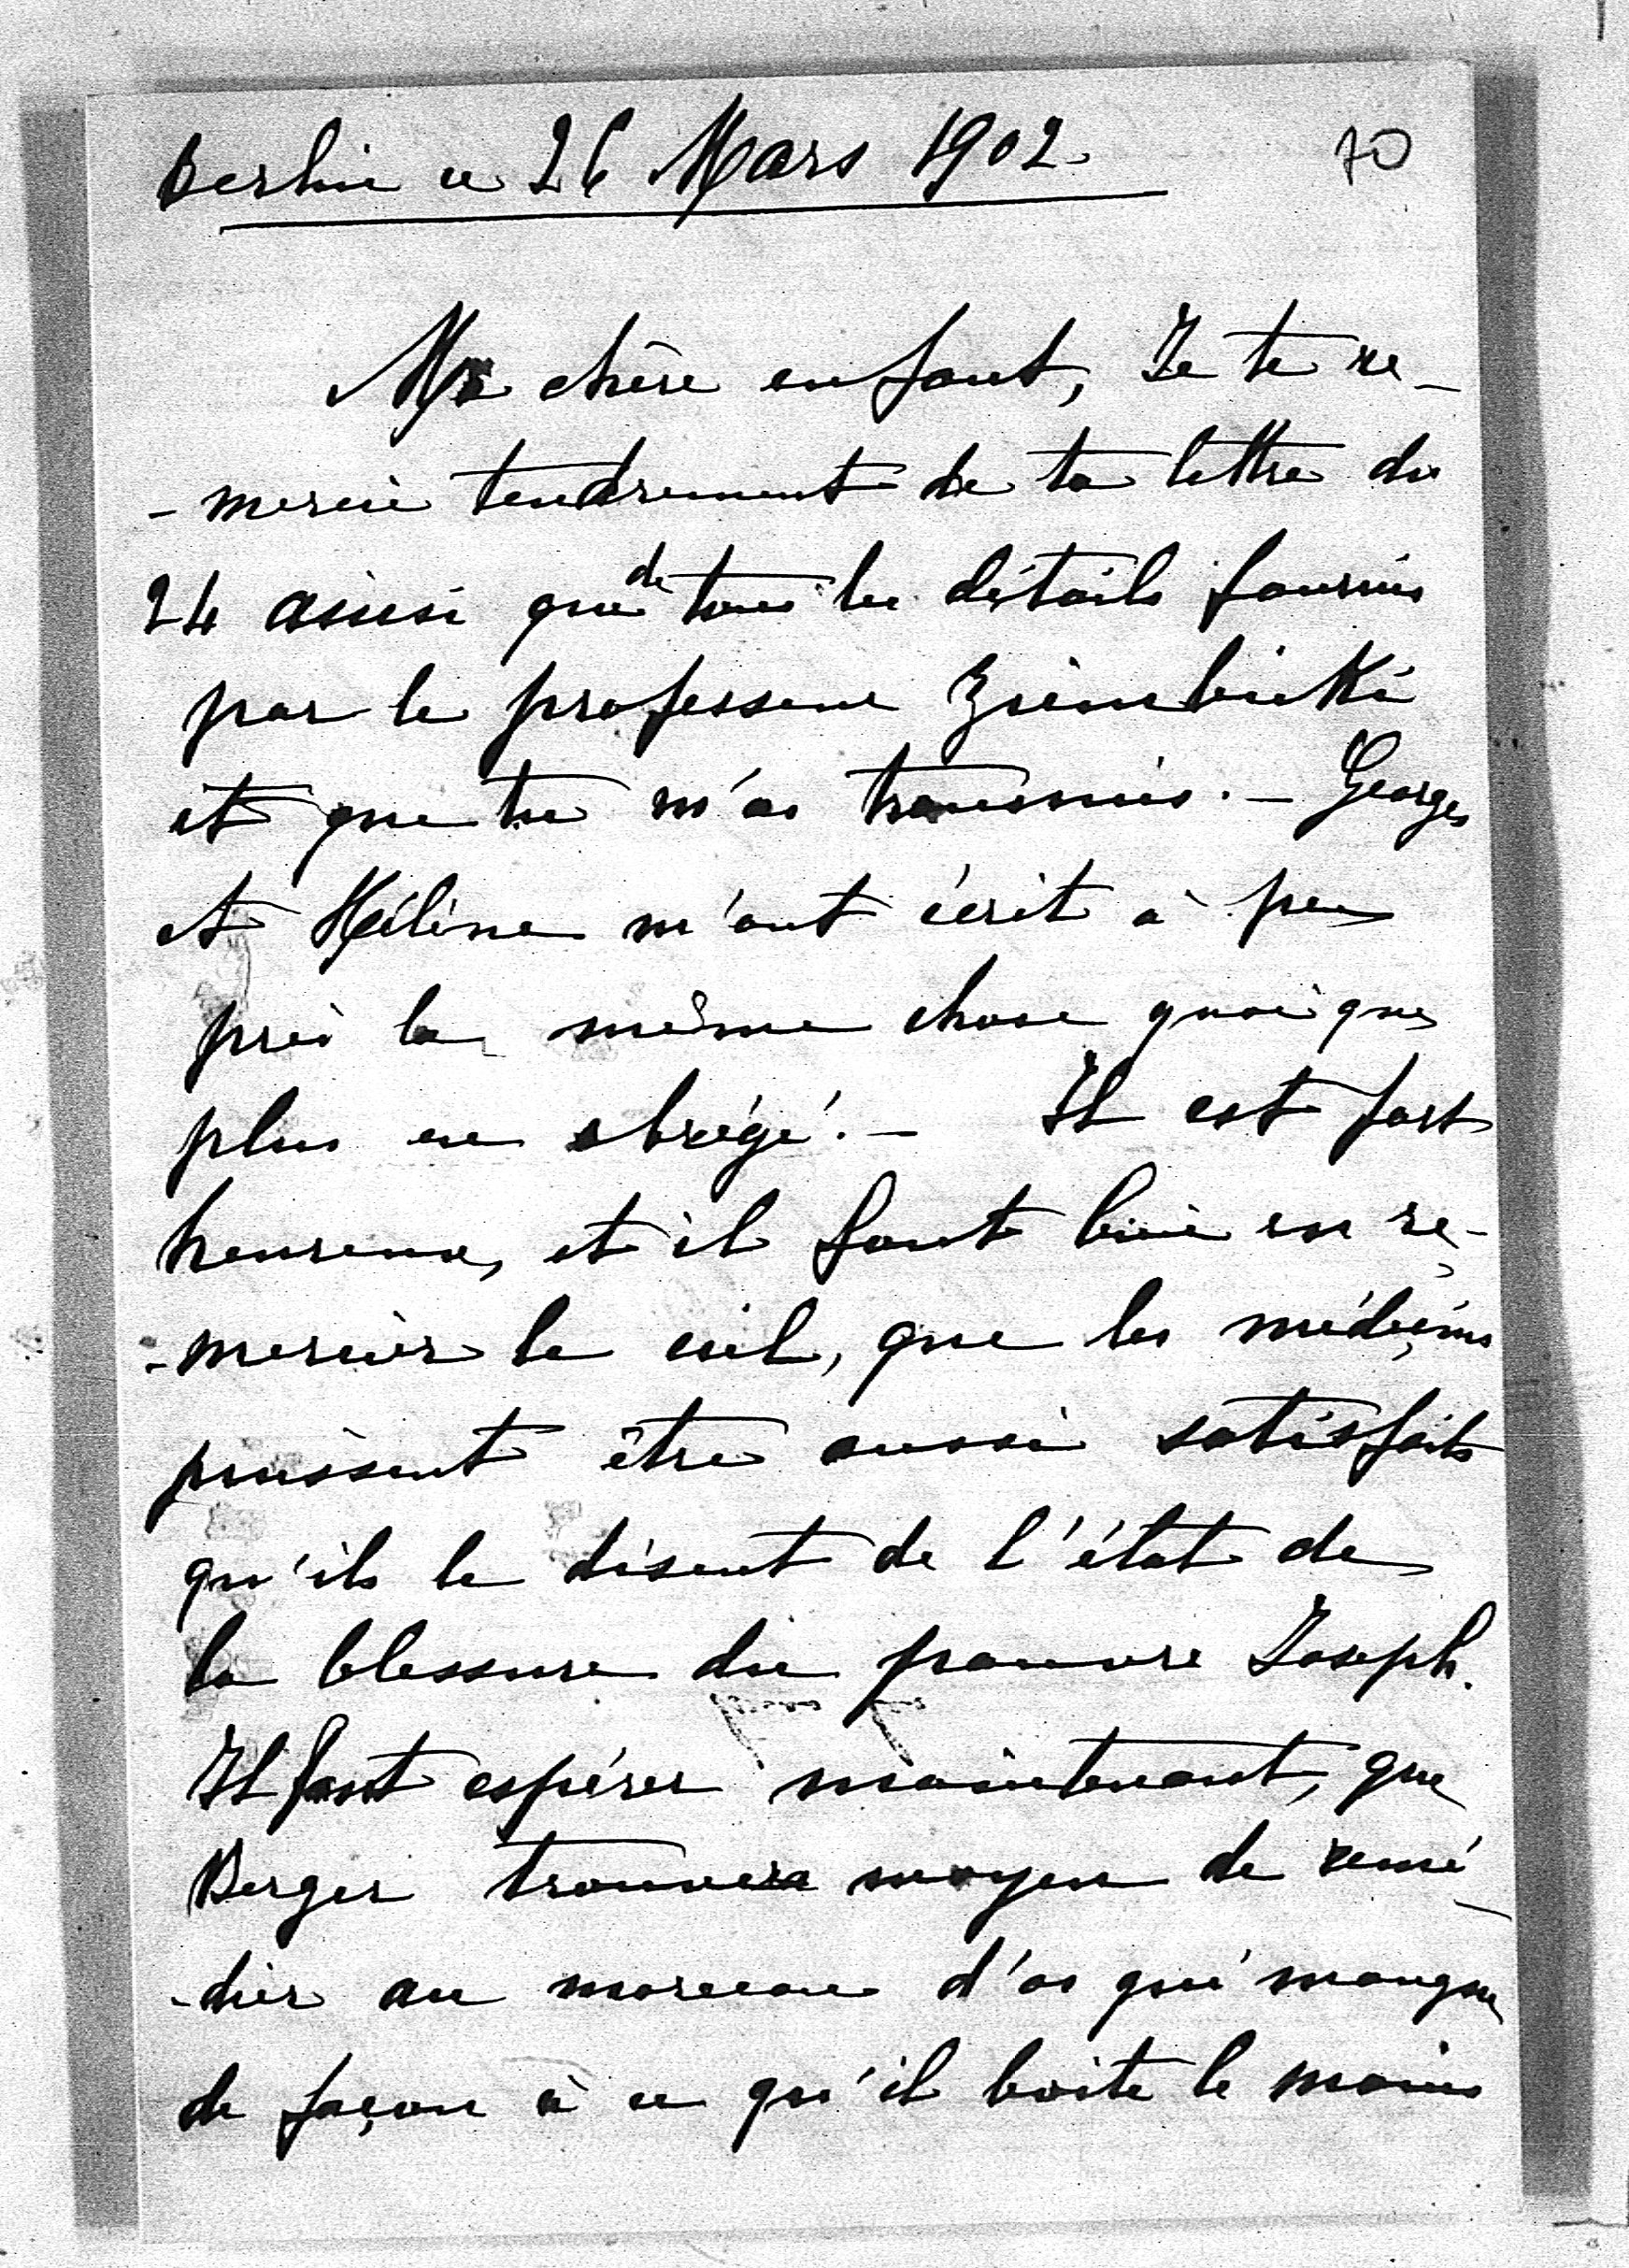 Berlin ce 26 Mars 1902.
70
Ma chère enfant, Je te re-
-mercie tendrement de ta lettre du
24 ainsi que de tous les détails fournis
par le professeur Ziembicki
et que tu m'as transmis. — Georges
et Hélène m'ont écrit à peu
près la même chose quoique
plus en abrégé. — Il est fort
heureux, et il faut bien en re-
-mercier le ciel, que les médecins
puissent être aussi satisfaits
qu'ils le disent de l'état de
la blessure du pauvre Joseph.
Il faut espérer maintenant, que
Berger trouvera moyen de remé-
-dier au morceau d'os qui manque
de façon à ce qu'il boite le moins